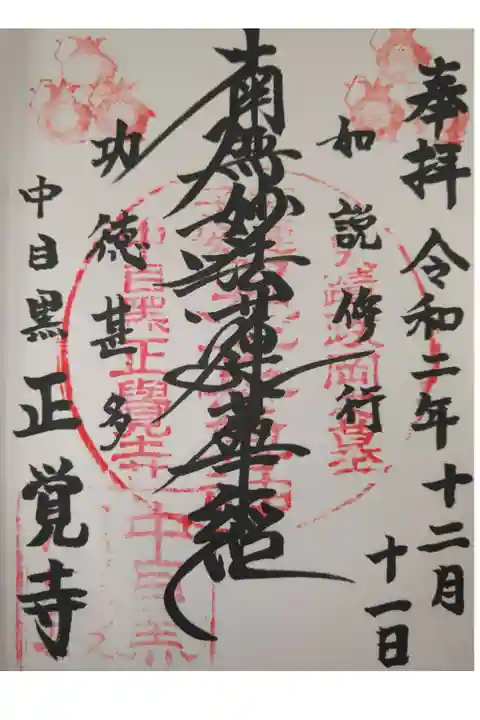 奉拝
令和二年十二月
十一日
如説修行
南無妙法蓮華経
功徳甚多
中目黒正覚寺
中目黒正覺寺
中目黒